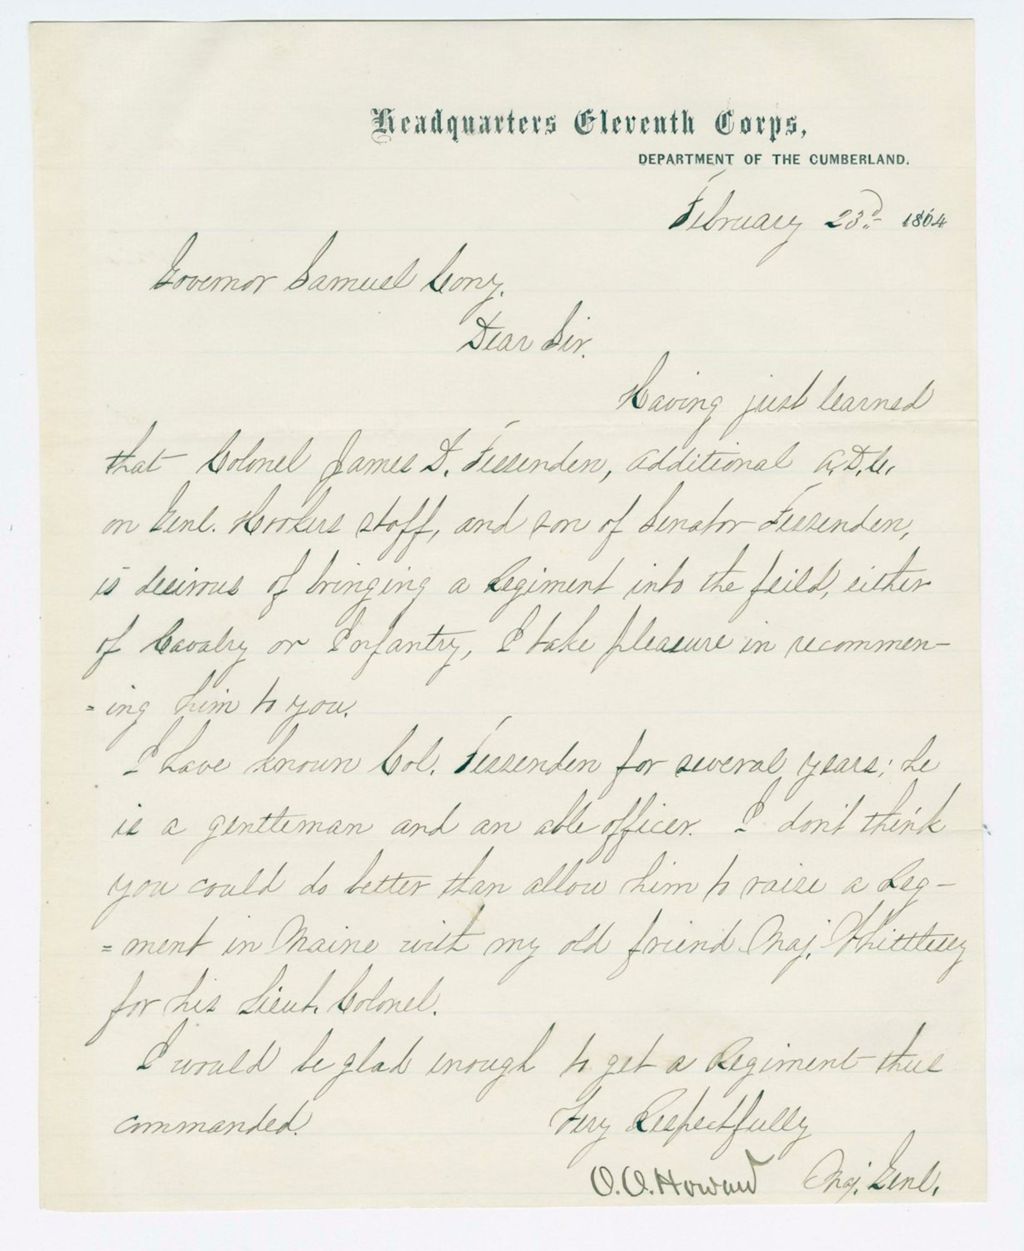 Headquarters Eleventh Corps,
DEPARTMENT OF THE CUMBERLAND.
February 23d. 1864
Governor Samuel Cony.
Dear Sir.
Having just learned
that Colonel James D. Fessenden, additional A.D.C.
on Genl. Hookers staff, and son of Senator Fessenden,
is desirous of bringing a Regiment into the feild, either
of Cavalry or Infantry, I take pleasure in recommen-
=ing him to you.
I have known Col. Fessenden for several years; he
is a gentleman and an able officer. I don't think
you could do better than allow him to raise a Reg-
=ment in Maine with my old friend Maj. Whittlesey
for his Lieut. Colonel.
I would be glad enough to get a Regiment thus
commanded. Very Respectfully
O.O. Howard Maj. Genl.